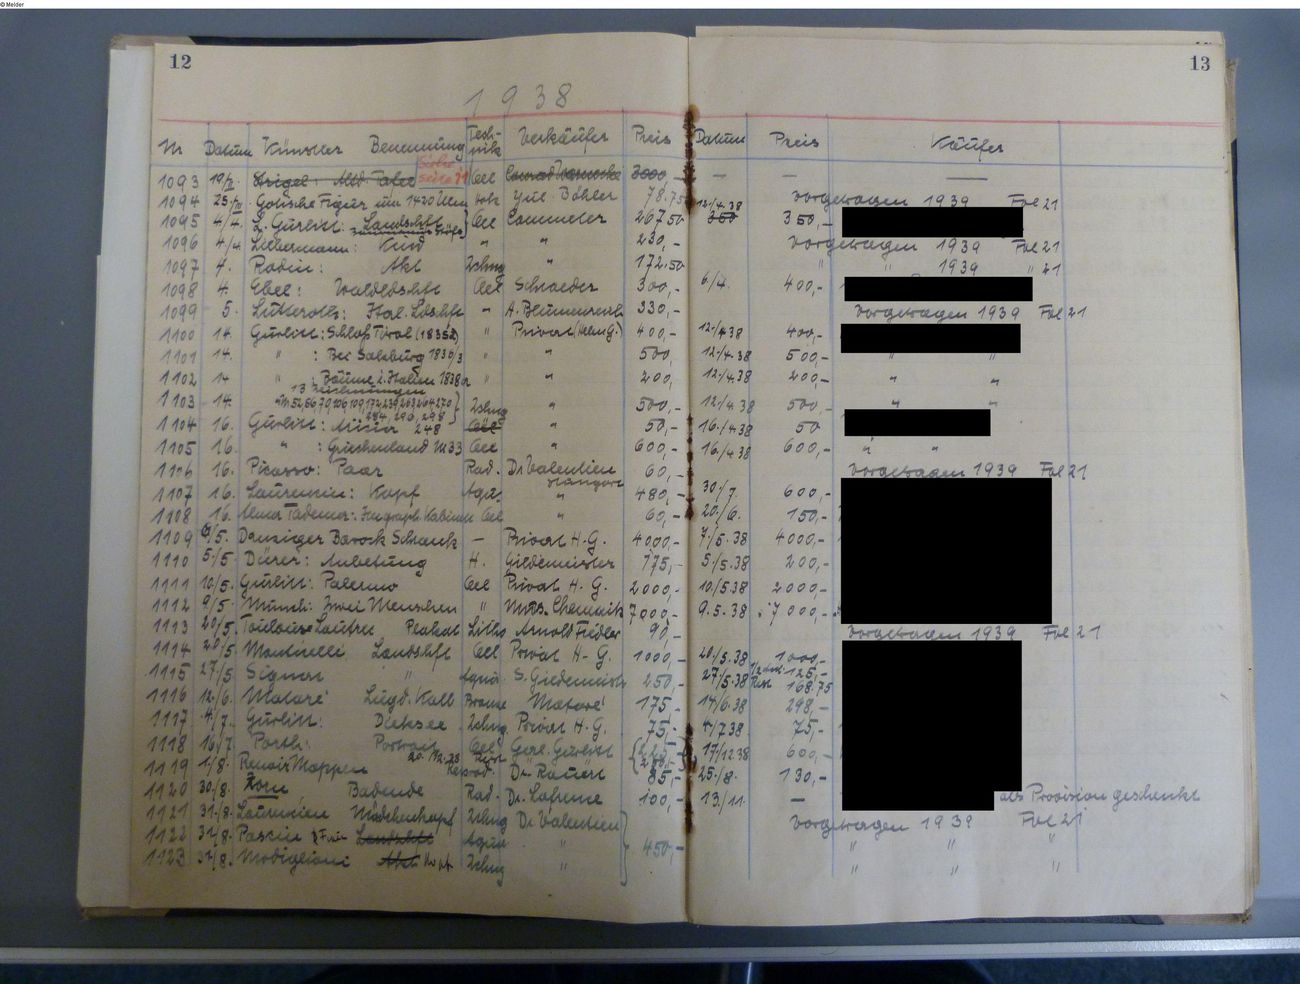 © Melder
12
13
1938
Nr Datum Künstler Benennung Technik Verkäufer Preis Datum Preis Käufer
siehe Seite
1093 19/ : Altd. Tafel Oel 3000,- — — —
1094 25/ Gotische Figur um 1420 Ulm Holz Jul. Böhler 78.75 vorgetragen 1939 Fol 21
1095 4/4. L. Gurlitt: Landschft Oel Commeter 267,50 12/4.38 350 350,-
1096 4/4 Liebermann: Kind " " 230,- vorgetragen 1939 Fol 21
1097 4. Rodin: Akt Zchng " 172.50 " " 1939 " 21
1098 4. Ebel: Waldldschft Oel Schroeder 300,- 6/4. 400,-
1099 5. Lutteroth: Ital. Ldschft " A. Blumenreich 330,- vorgetragen 1939 Fol 21
1100 14. Gurlitt: Schloß Tirol (1835) " Privat (Helen G.) 400,- 12/4.38 400,-
1101 14. " : Bei Salzburg 1830/3 " " 500,- 12/4.38 500,- " "
1102 14 " : Bäume i. Italien 1838 " " 200,- 12/4.38 200,- " "
13 Zeichnungen
1103 14. Zchng " 500,- 12/4.38 500,- " "
284, 290, 298
1104 16. Gurlitt: 248 Oel " 50,- 16./4.38 50
1105 16. " : Griechenland Oel " 600,- 16/4.38 600,- " "
1106 16. Picasso: Paar Rad. Dr Valentien 60,- vorgetragen 1939 Fol 21
Stuttgart
1107 16. Laurencin: Kopf Aqu. " 480,- 30/7. 600,-
1108 16. Alma Tadema: Kabinett Oel " 60,- 20./6. 150,-
1109 6/5. Danziger Barock Schrank — Privat H. G. 4000,- 7/5.38 4000,-
1110 5/5 Dürer: Anbetung H. Gildemeister 175,- 5/5.38 200,-
1111 10/5. Gurlitt: Palermo Oel Privat H. G. 2000,- 10/5.38 2000,-
1112 9/5. Munch: Zwei Menschen " Mus. Chemnitz 7000,- 9.5.38 7000,-
1113 20/5. Toulouse Lautrec Plakat Litho Arnold Fiedler 90,- vorgetragen 1939 Fol 21
1114 20/5 Monticelli Landschft Oel Privat H. G. 1000,- 20/5.38 1000,-
1115 27/5. Signac " Aquar. S. Giedemeister 250,- 27/5.38 125,-
Rest 168.75
1116 12./6. Mataré Liegd. Kalb Bronze Mataré 175,- 14/6.38 298,-
1117 4/7. Gurlitt: Dieksee Zchng Privat H. G. 75,- 4/7 38 75,-
1118 16/7 Porth: Portrait Oel Gurlitt 17/12 38 600,-
1119 1/8. Renoir Mappen Dr. 85,- 25./8. 130,-
1120 30/8. Zorn Badende Rad. Dr. 100,- 13/11 — als Provision geschenkt
1121 31/8. Laurencin Mädchenkopf Zchng Dr Valentien vorgetragen 1939 Fol 21
1122 31/8. Pascin Landschft Aquar " 450,- " " "
1123 31/8. Modigliani Akt Kopf Zchng " " " "